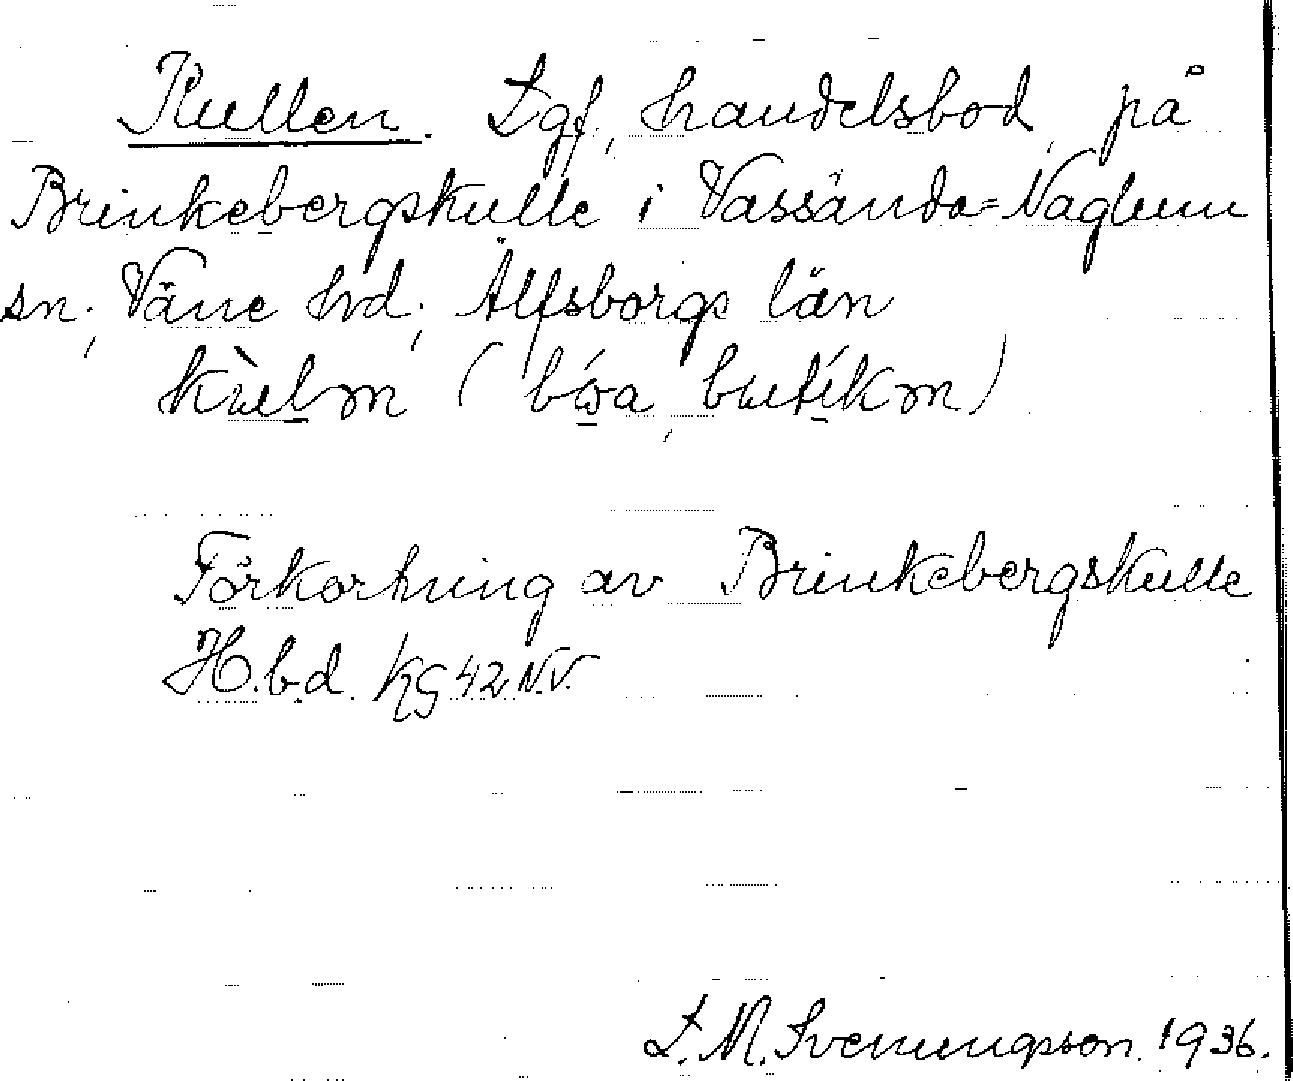 Kullen. Lgf, handelsbod, på
Brinkebergskulle i Vassända-Naglum
sn; Väne hd; Älfsborgs län
kùlm (bóa, butíkm)
Förkortning av Brinkebergskulle
H.b.d. KG 42 N.V.
L. M. Svenungsson. 1936.